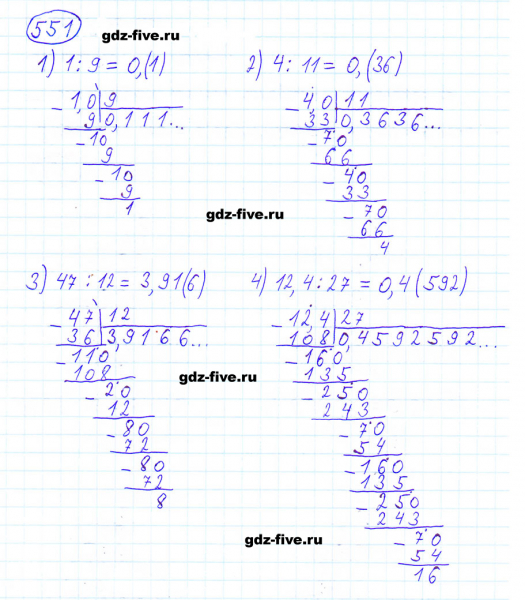 551
gdz-five.ru
1) 1 : 9 = 0,(1)
- 1,0 | 9
9 | 0,111...
- 10
9
- 10
9
1
2) 4 : 11 = 0,(36)
- 4,0 | 11
33 | 0,3636...
- 70
66
- 40
33
- 70
66
4
gdz-five.ru
3) 47 : 12 = 3,91(6)
- 47 | 12
36 | 3,9166...
- 110
108
- 20
12
- 80
72
- 80
72
8
gdz-five.ru
4) 12,4 : 27 = 0,4(592)
- 12,4 | 27
108 | 0,4592592...
- 160
135
- 250
243
- 70
54
- 160
135
- 250
243
- 70
54
16
gdz-five.ru